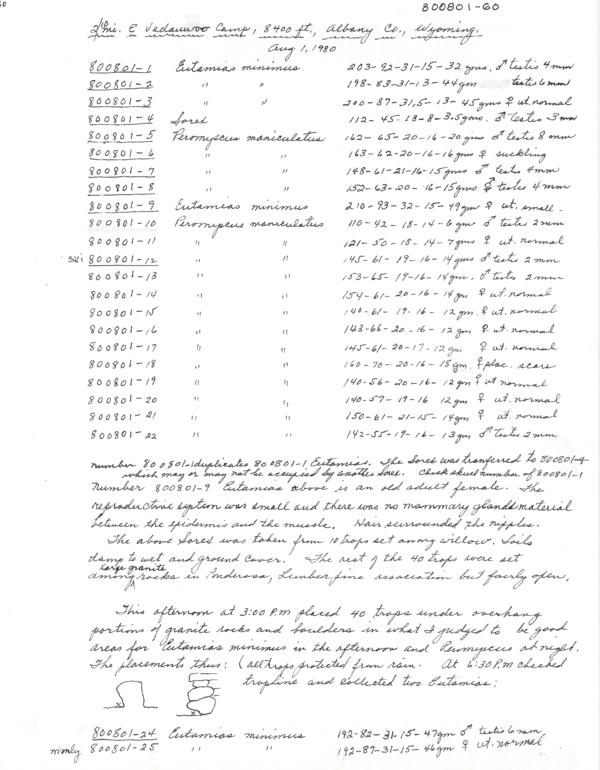 800801-60
2½ mi. E Vedauwoo Camp, 8400 ft., Albany Co., Wyoming.
Aug 1, 1980
800801-1 Eutamias minimus 203-92-31-15-32 gms. ♂ testis 4mm
800801-2 " " 198-83-31-13-44gm testis 6mm
800801-3 " " 200-87-31,5-13-45gms ♀ ut. normal
800801-4 Sorex 112-45-13-8-3,5gms. ♂ testes 3mm
800801-5 Peromyscus maniculatus 162-65-20-16-20gms ♂ testis 8mm
800801-6 " " 163-62-20-16-16gms ♀ suckling
800801-7 " " 148-61-21-16-15gms ♂ testis 4mm
800801-8 " " 152-63-20-16-15gms ♂ testes 4mm
800801-9 Eutamias minimus 210-93-32-15-49gm ♀ ut. small.
800801-10 Peromyscus maniculatus 110-42-18-14-6gm ♂ testes 2mm
800801-11 " " 121-50-18-14-7gms ♀ ut. normal
800801-12 " " 145-61-19-16-14gms ♂ testis 2mm
800801-13 " " 153-65-19-16-14gm. ♂ testis 2mm
800801-14 " " 154-61-20-16-14gm ♀ ut. normal
800801-15 " " 140-61-19-16-12gm. ♀ ut. normal
800801-16 " " 143-66-20-16-12gm ♀ ut. normal
800801-17 " " 145-61-20-17-12gm ♀ ut. normal
800801-18 " " 160-70-20-16-18gm. ♀ plac. scars
800801-19 " " 140-56-20-16-12gm ♀ ut normal
800801-20 " " 140-57-19-16 12gm ♀ ut. normal
800801-21 " " 150-61-21-15-14gm ♀ ut. normal
800801-22 " " 142-55-19-16-13gm ♂ testis 2mm
number 800801-1 duplicates 800801-1 Eutamias. The Sorex was tranferred to 800801-4
which may or may not be occupied by another Sorex. Check skull number of 800801-1
Number 800801-9 Eutamias above is an old adult female. The
reproductive system was small and there was no mammary glands material
between the epidermis and the muscle. Hair surrounded the nipples.
The above Sorex was taken from 10 traps set among willow. Soils
damp to wet and ground cover. The rest of the 40 traps were set
large granite
among rocks in Ponderosa, Limber pine association but fairly open.
This afternoon at 3:00 P.M placed 40 traps under overhang
portions of granite rocks and boulders in what I judged to be good
areas for Eutamias minimus in the afternoon and Peromyscus at night.
The placements thus: (all traps protected from rain. At 6:30 P.M checked
trapline and collected two Eutamias:
800801-24 Eutamias minimus 192-82-31-15-47gm ♂ testis 6mm
800801-25 " " 192-87-31-15-46gm ♀ ut. normal